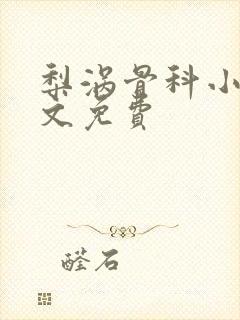 梨涡骨科小
文免费
醛石